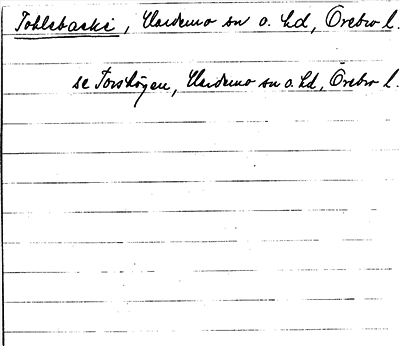 Tohlebacke, Hardemo sn o. hd, Örebro l.
se Torshögen, Hardemo sn o. hd, Örebro l.